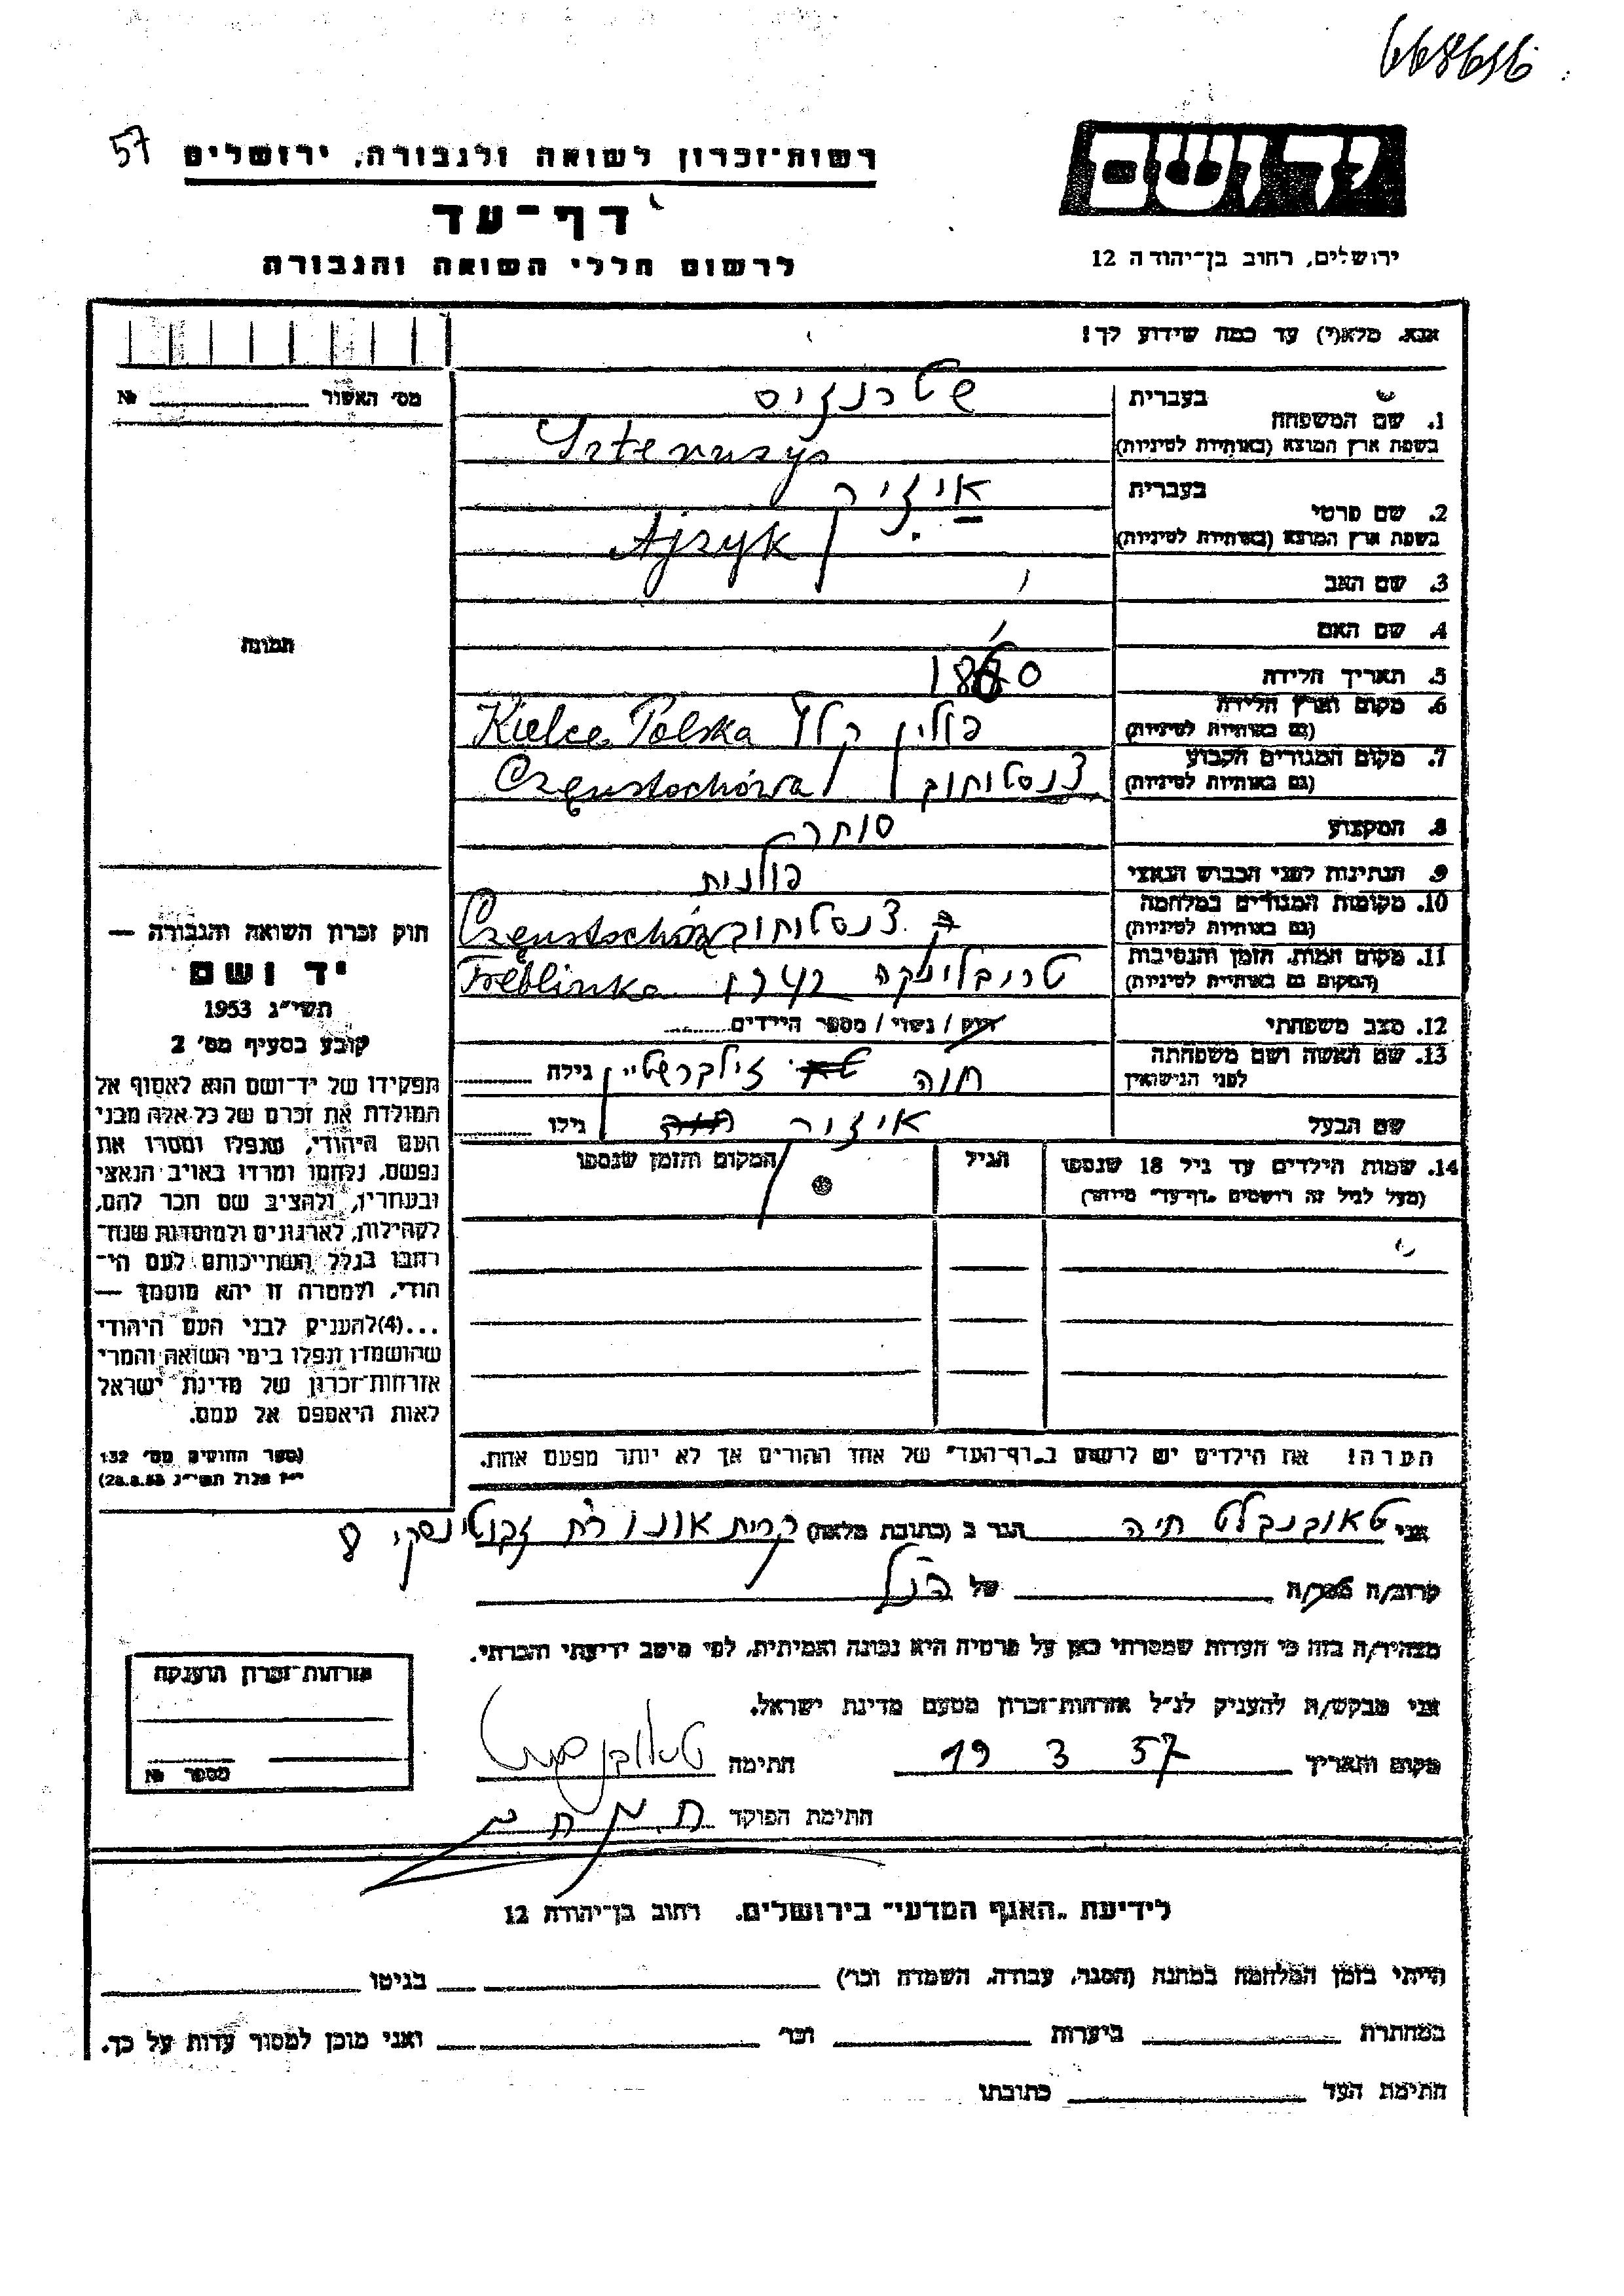 668616
57
רשות-זכרון לשואה ולגבורה, ירושלים
יד ושם
דף-עד
לרשום חללי השואה והגבורה
ירושלים, רחוב בן-יהודה 12
אנא, מלא(י) עד כמה שידוע לך!
מס' האשור № ______
1. שם המשפחה
בעברית שטרנזיס
בשפת ארץ המוצא (באותיות לטיניות)
2. שם פרטי
בעברית איזיק
בשפת ארץ המוצא (באותיות לטיניות) Ajzyk
3. שם האב
4. שם האם
תמונה
5. תאריך הלידה
6. מקום וארץ הלידה (גם באותיות לטיניות) פולין קלץ Kielce Polska
7. מקום המגורים הקבוע (גם באותיות לטיניות) צנסטוחוב Częnstochówa
8. המקצוע סוחר
9. הנתינות לפני הכבוש הנאצי פולנית
10. מקומות המגורים במלחמה (גם באותיות לטיניות) צנסטוחוב
11. מקום המות, הזמן והנסיבות (המקום גם באותיות לטיניות) טריבלינקה Treblinka
12. מצב משפחתי רווק / נשוי / מספר הילדים
13. שם האשה ושם משפחתה לפני הנישואין חוה זילברשטיין גילה
שם הבעל איזיק גילו
14. שמות הילדים עד גיל 18 שנספו
(מעל לגיל זה רושמים "דף-עד" מיוחד)
הגיל
המקום והזמן שנספו
הערה! את הילדים יש לרשום ב"דף-העד" של אחד ההורים אך לא יותר מפעם אחת.
חוק זכרון השואה והגבורה —
יד ושם
תשי"ג 1953
קובע בסעיף מס' 2
תפקידו של יד-ושם הוא לאסוף אל
המולדת את זכרם של כל אלה מבני
העם היהודי, שנפלו ומסרו את
נפשם, נלחמו ומרדו באויב הנאצי
ובעוזריו, ולהציב שם וזכר להם,
לקהילות, לארגונים ולמוסדות שנח־
רבו בגלל השתייכותם לעם הי־
הודי, ולמטרה זו יהא מוסמך —
...(4)להעניק לבני העם היהודי
שהושמדו ונפלו בימי השואה והמרי
אזרחות-זכרון של מדינת ישראל
לאות היאספם אל עמם.
(ספר החוקים מס' 132
י"ז אלול תשי"ג 28.8.53)
אני טאובנבלט חיה הגר ב (כתובת מלאה) קרית אונו רח זבוטינסקי 8
קרוב/ה מכר/ה של הנ"ל
מצהיר/ה בזה כי העדות שמסרתי כאן על פרטיה היא נכונה ואמיתית, לפי מיטב ידיעתי והכרתי.
אני מבקש/ת להעניק לנ"ל אזרחות-זכרון מטעם מדינת ישראל.
מקום ותאריך 19 3 57 חתימה
חתימת הפוקד
אזרחות-זכרון הוענקה
מספר №
לידיעת "האגף המדעי" בירושלים. רחוב בן-יהודה 12
הייתי בזמן המלחמה במחנה (הסגר, עבודה, השמדה וכו') בגיטו
במחתרת ביערות וכו' ואני מוכן למסור עדות על כך.
חתימת העד כתובתו